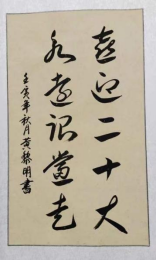 喜迎二十大
永远跟党走
壬寅年秋月黄黎明书